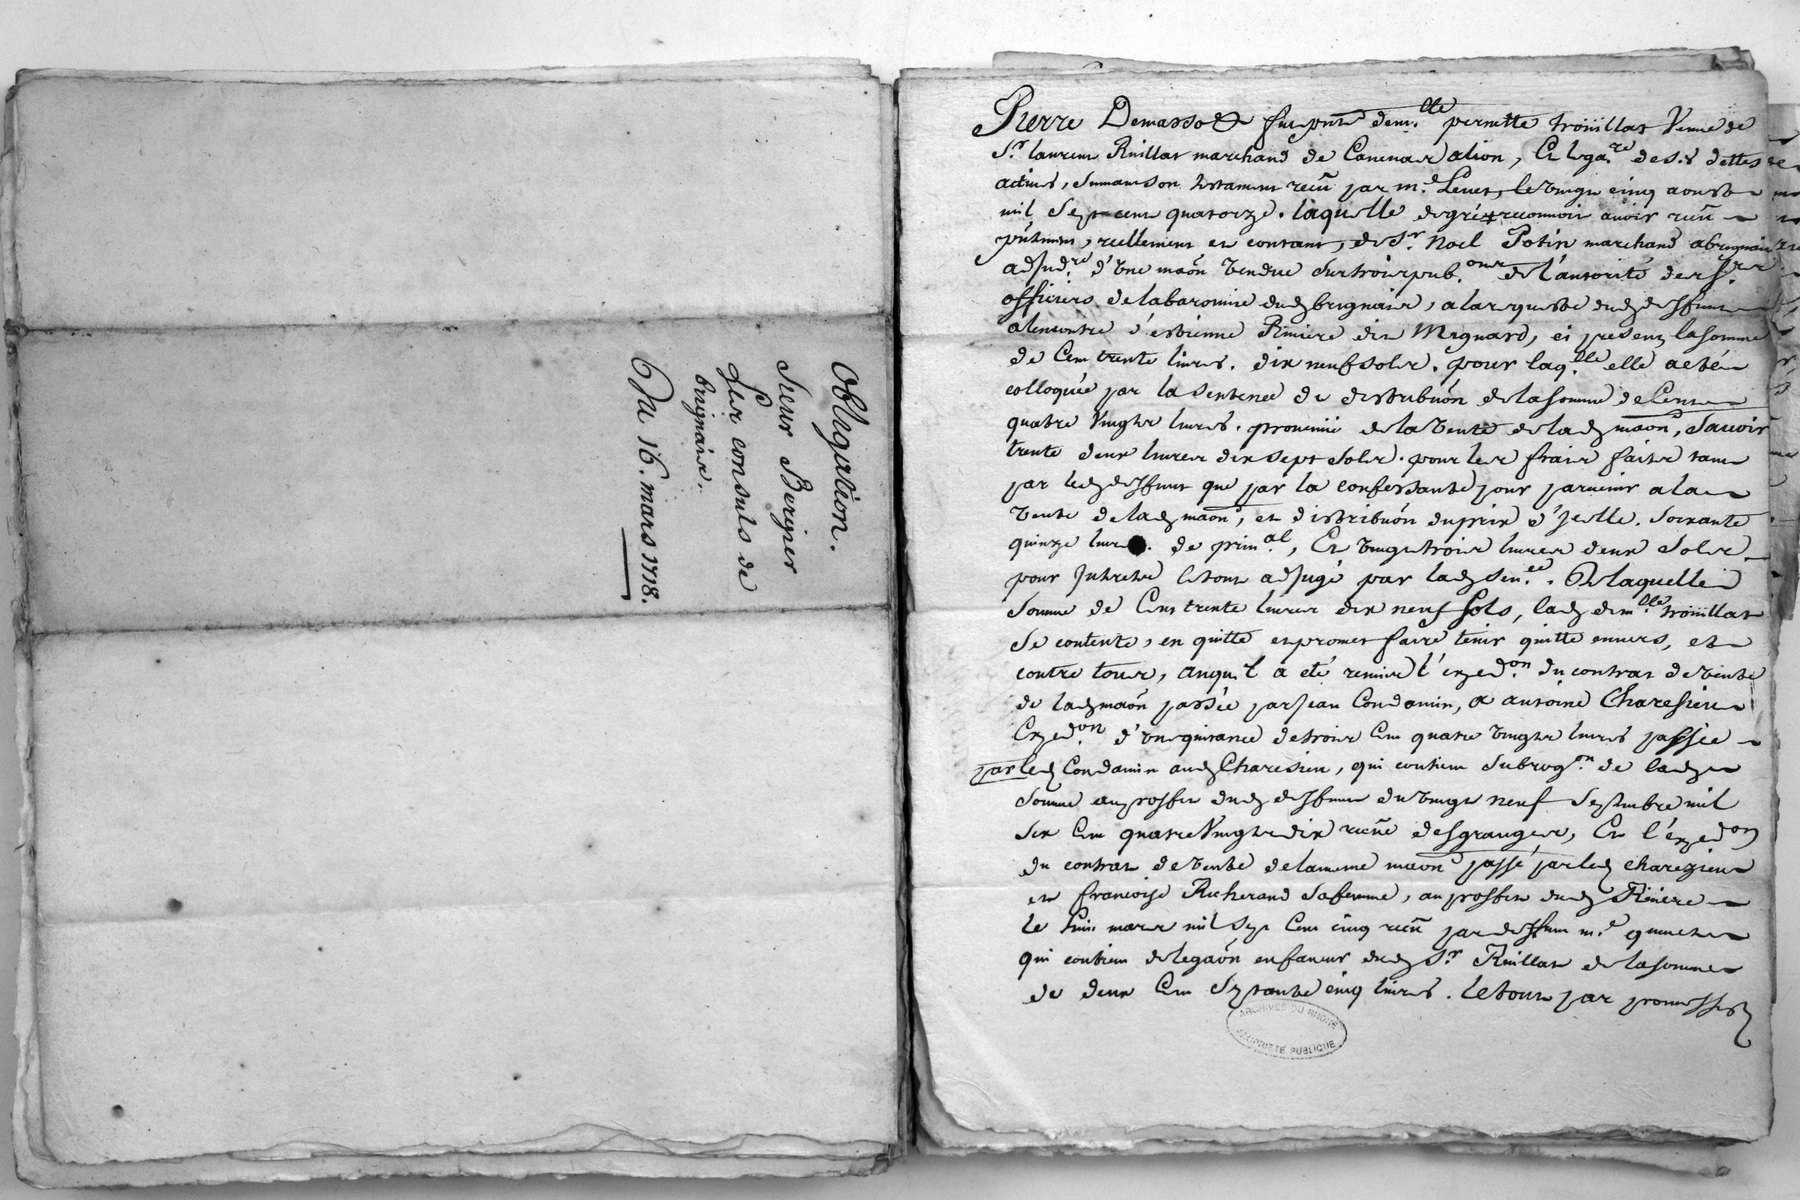 Obligation.
Sieur Bergner
P
Les consuls de
brignais.
Du 16. mars 1718.
Pierre Demasso fut pnte dem.lle pernette troüillat Veuve de
S.r laurent Ruillat marchand de lion, Et lega.re de ses dettes
actives, suivant son testament receu par m.e le vingt cinq aoust
mil Sept cent quatorze. laquelle de gré reconnoit avoir receu
pntement, reellement et contant, de S.r Noel Potin marchand a brignais
adjud.re d'Une maôn vendue sur trois pub.ons de l'autorité des s.rs
officiers de la baronnie dud brignais, a la requeste dud deffunt
alencontre d'estienne Riviere dit Magnard, ci present, la somme
de Cent trente livres. dix neuf sols. pour laq.lle elle a eté
colloquée par la sentence de distribuôn de la somme de Cent
quatre Vingts livres. provenüe de la vente de lad maôn, Sauvoir
trente deux livres dix sept sols. pour les frais faits tant
par led deffunt que par la confessante pour parvenir a la
vente de lad maôn, et distribuôn du prix d'jcelle. Soixante
quinze livres. de prin.al, Et vingt trois livres deux sols
pour Jnterets le tout adjugé par lad sen.ce. De laquelle
somme de Cent trente livres dix neuf sols, lad dem.lle troüillat
se contente, en quitte et promet faire tenir quitte envers, et
contre tous, auquel a eté remise l'exped.on du contrat de vente
de lad maôn passée par Jean Condamin, a antoine Charesieu
Exped.on d'Une quittance de trois Cent quatre vingts livres passée
par led Condamin aud Charesieu, qui contient subrog.on de lad
somme au proffit dud deffunt du vingt neuf Septembre mil
six Cent quatre Vingts dix receüe desgranges, Et l'exped.on
du contrat de vente de la meme maôn passé par led charezieu
et francoise Richerand sa femme, au proffit dud Riviere
le huit mars mil sept Cent cinq receu par deffunt m.e
qui contient delegaôn en faveur dud S.r Ruillat de la somme
de deux Cent Septante cinq livres. le tout par promesses
ARCHIVES DU RHONE
PROPRIÉTÉ PUBLIQUE